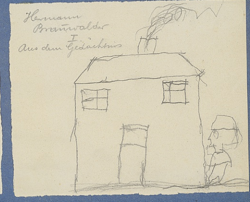 Hermann
Braunwalder
I
Aus dem Gedächtnis